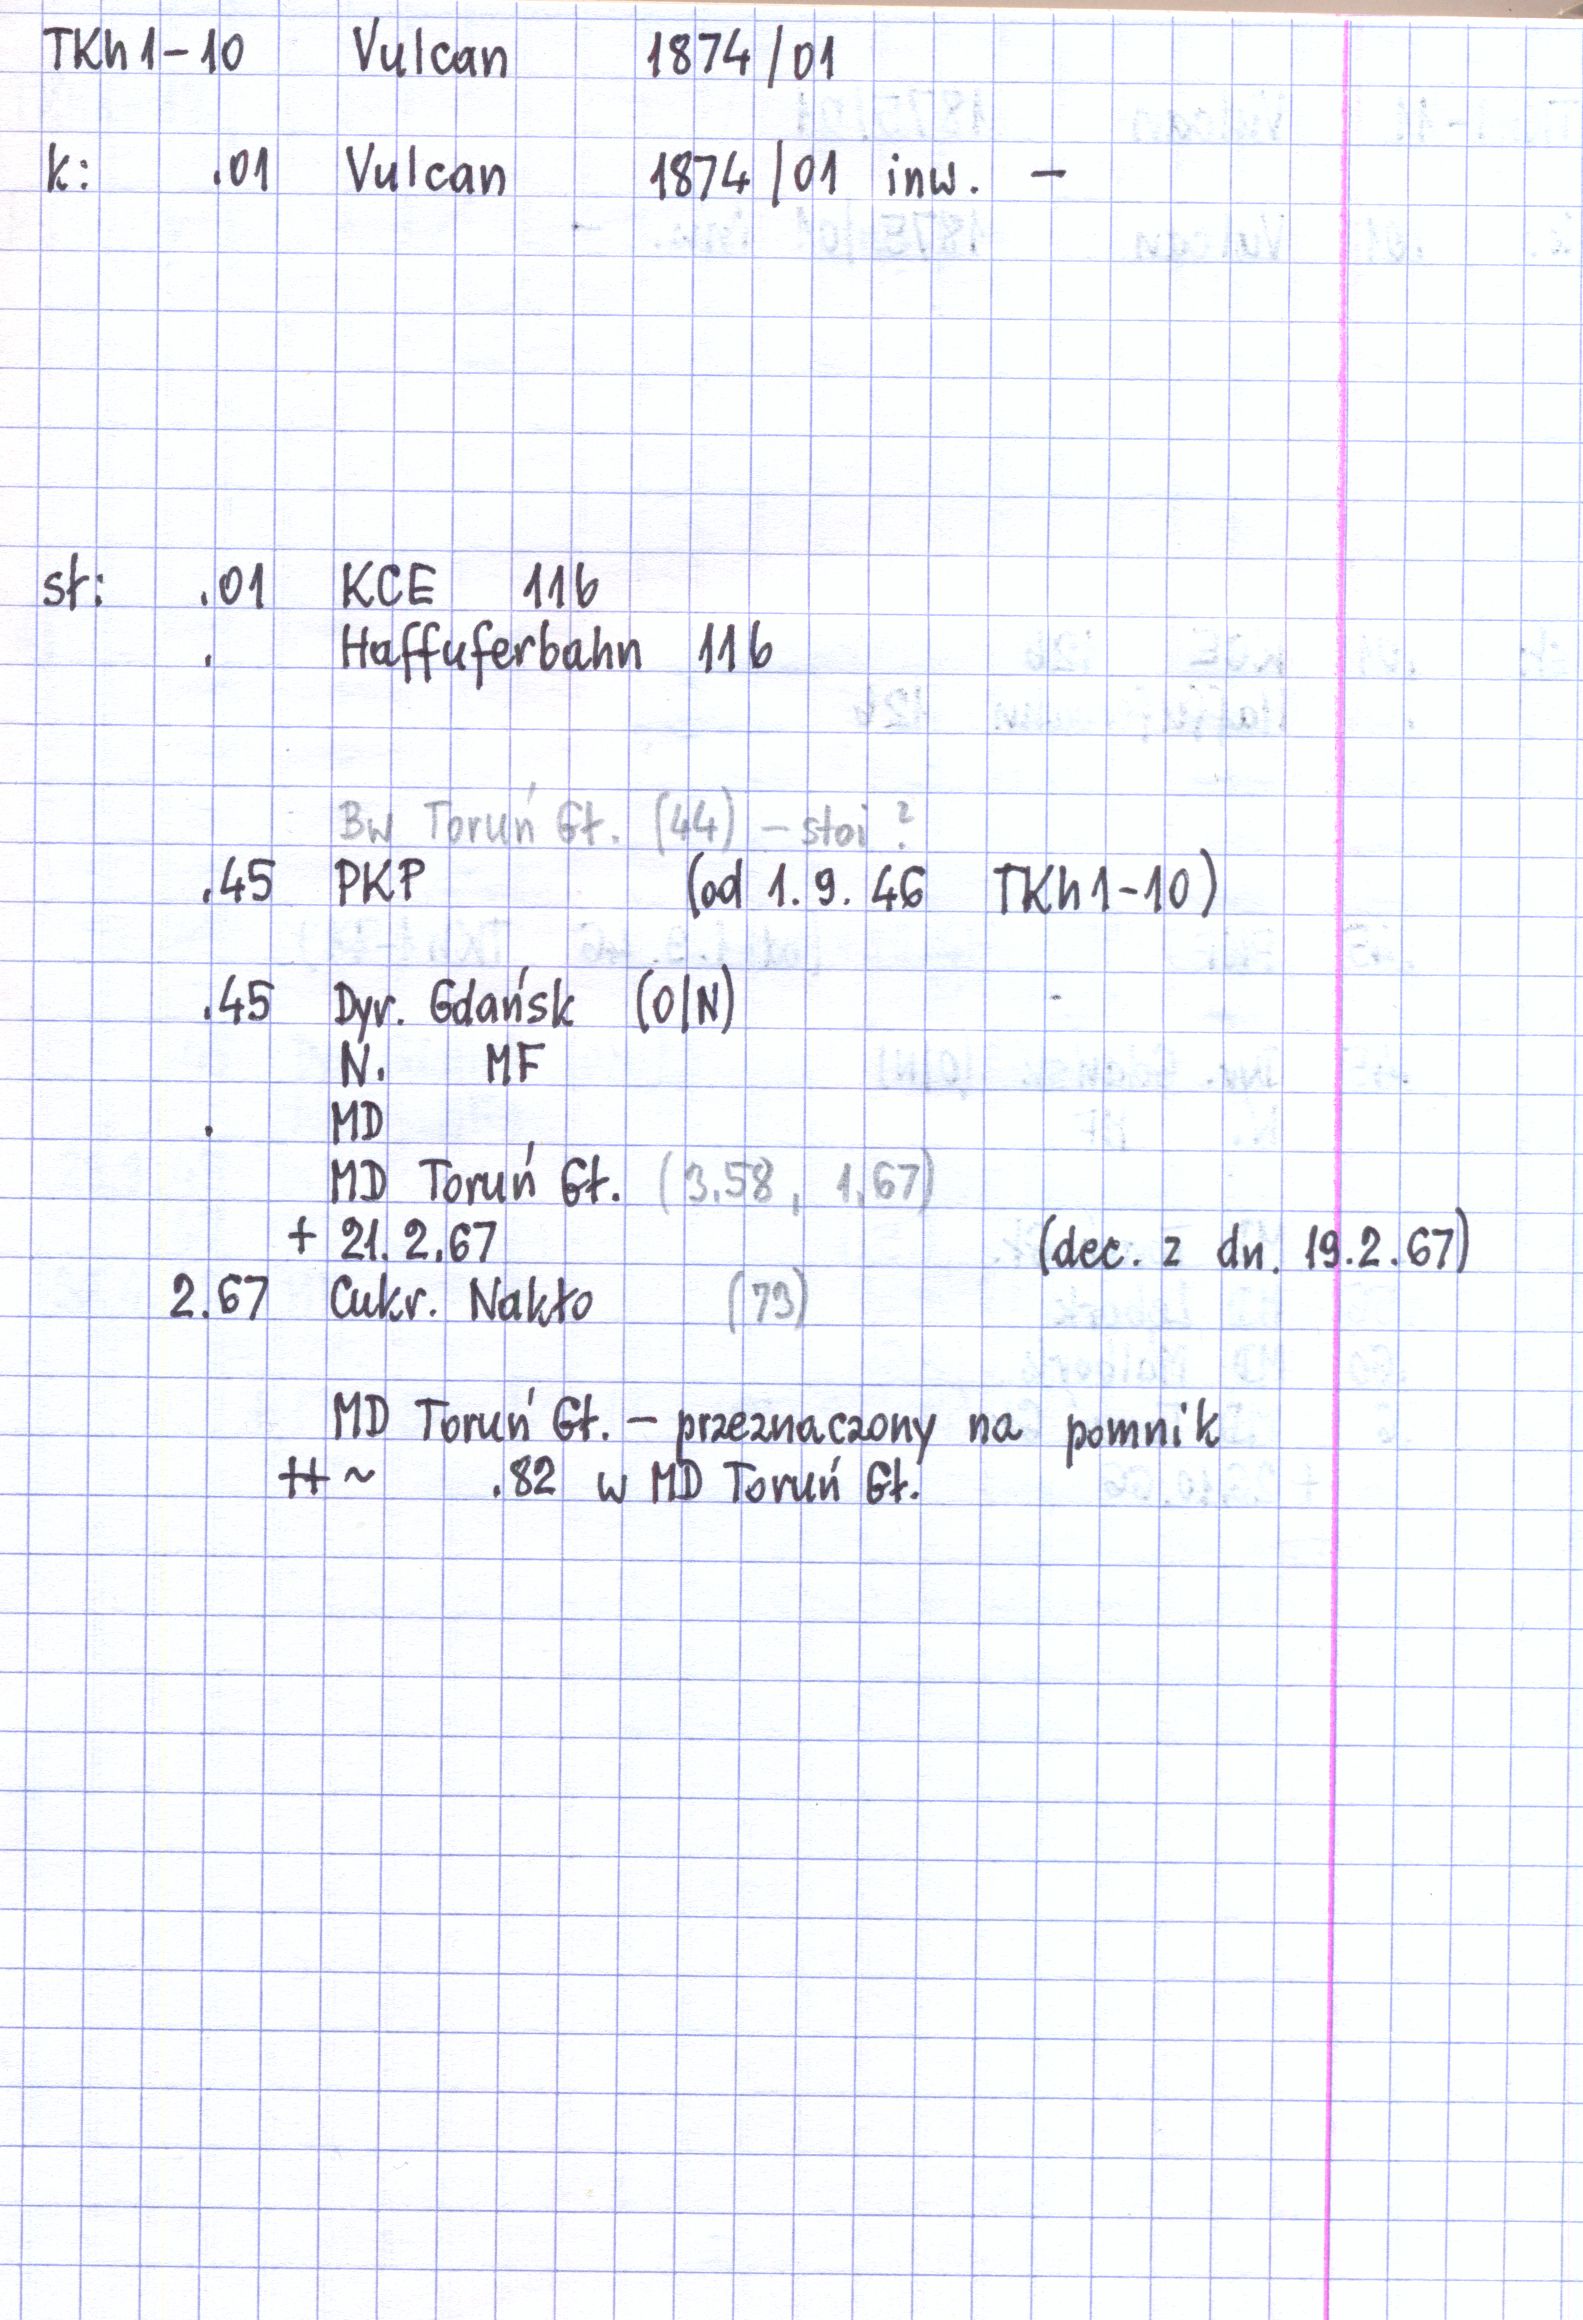 TKh1-10 Vulcan 1874/01
k: .01 Vulcan 1874/01 inw. –
sł: .01 KCE 11b
. Haffuferbahn 11b
Bw Toruń Gł. (44) – stoi ?
.45 PKP (od 1.9.46 TKh1-10)
.45 Dyr. Gdańsk (O/N)
N. MF
. MD
MD Toruń Gł. (3.58, 1.67)
+ 21.2.67 (dec. z dn. 19.2.67)
2.67 Cukr. Nakło (73)
MD Toruń Gł. – przeznaczony na pomnik
++ ~ .82 w MD Toruń Gł.